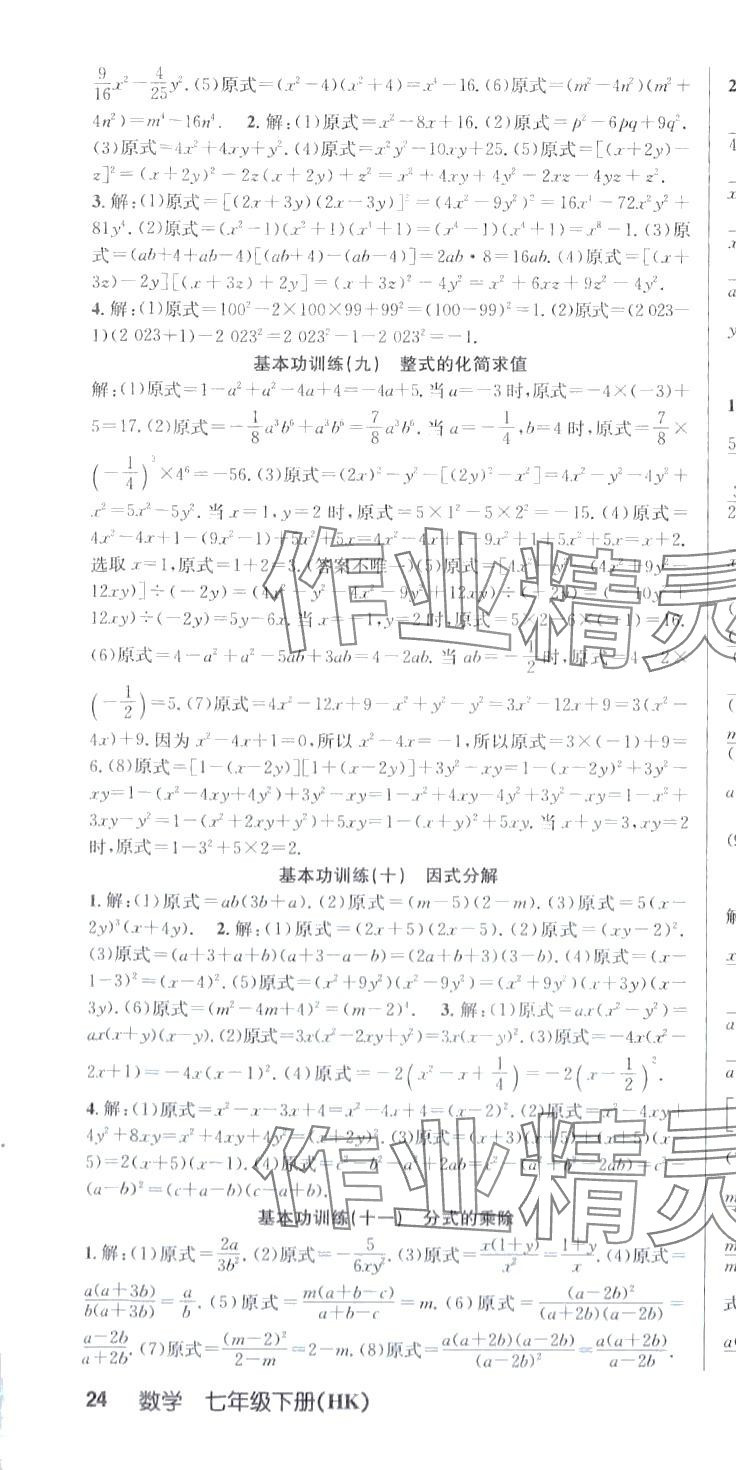 9/16 x²－4/25 y².(5)原式＝(x²－4)(x²＋4)＝x⁴－16.(6)原式＝(m²－4n²)(m²＋
4n²)＝m⁴－16n⁴. 2.解:(1)原式＝x²－8x＋16.(2)原式＝p²－6pq＋9q².
(3)原式＝4x²＋4xy＋y².(4)原式＝x²y²－10xy＋25.(5)原式＝[(x＋2y)－
z]²＝(x＋2y)²－2z(x＋2y)＋z²＝x²＋4xy＋4y²－2xz－4yz＋z².
3.解:(1)原式＝[(2x＋3y)(2x－3y)]²＝(4x²－9y²)²＝16x⁴－72x²y²＋
81y⁴.(2)原式＝(x²－1)(x²＋1)(x⁴＋1)＝(x⁴－1)(x⁴＋1)＝x⁸－1.(3)原
式＝(ab＋4＋ab－4)[(ab＋4)－(ab－4)]＝2ab·8＝16ab.(4)原式＝[(x＋
3z)－2y][(x＋3z)＋2y]＝(x＋3z)²－4y²＝x²＋6xz＋9z²－4y².
4.解:(1)原式＝100²－2×100×99＋99²＝(100－99)²＝1.(2)原式＝(2 023－
1)(2 023＋1)－2 023²＝2 023²－1－2 023²＝－1.
基本功训练(九) 整式的化简求值
解:(1)原式＝1－a²＋a²－4a＋4＝－4a＋5.当a＝－3时,原式＝－4×(－3)＋
5＝17.(2)原式＝－1/8 a³b⁶＋a³b⁶＝7/8 a³b⁶.当a＝－1/4,b＝4时,原式＝7/8×
(－1/4)³×4⁶＝－56.(3)原式＝(2x)²－y²－[(2y)²－x²]＝4x²－y²－4y²＋
x²＝5x²－5y².当x＝1,y＝2时,原式＝5×1²－5×2²＝－15.(4)原式＝
4x²－4x＋1－(9x²－1)＋5x²＋5x＝4x²－4x＋1－9x²＋1＋5x²＋5x＝x＋2.
选取x＝1,原式＝1＋2＝3.(答案不唯一)(5)原式＝[4x²－y²－(4x²＋9y²－
12xy)]÷(－2y)＝(4x²－y²－4x²－9y²＋12xy)÷(－2y)＝(－10y²＋
12xy)÷(－2y)＝5y－6x.当x＝－1,y＝2时,原式＝5×2－6×(－1)＝16.
(6)原式＝4－a²＋a²－5ab＋3ab＝4－2ab.当ab＝－1/2时,原式＝4－2×
(－1/2)＝5.(7)原式＝4x²－12x＋9－x²＋y²－y²＝3x²－12x＋9＝3(x²－
4x)＋9.因为x²－4x＋1＝0,所以x²－4x＝－1,所以原式＝3×(－1)＋9＝
6.(8)原式＝[1－(x－2y)][1＋(x－2y)]＋3y²－xy＝1－(x－2y)²＋3y²－
xy＝1－(x²－4xy＋4y²)＋3y²－xy＝1－x²＋4xy－4y²＋3y²－xy＝1－x²＋
3xy－y²＝1－(x²＋2xy＋y²)＋5xy＝1－(x＋y)²＋5xy.当x＋y＝3,xy＝2
时,原式＝1－3²＋5×2＝2.
基本功训练(十) 因式分解
1.解:(1)原式＝ab(3b＋a).(2)原式＝(m－5)(2－m).(3)原式＝5(x－
2y)³(x＋4y). 2.解:(1)原式＝(2x＋5)(2x－5).(2)原式＝(xy－2)².
(3)原式＝(a＋3＋a＋b)(a＋3－a－b)＝(2a＋b＋3)(3－b).(4)原式＝(x－
1－3)²＝(x－4)².(5)原式＝(x²＋9y²)(x²－9y²)＝(x²＋9y²)(x＋3y)(x－
3y).(6)原式＝(m²－4m＋4)²＝(m－2)⁴. 3.解:(1)原式＝ax(x²－y²)＝
ax(x＋y)(x－y).(2)原式＝3x(x²－2xy＋y²)＝3x(x－y)².(3)原式＝－4x(x²－
2x＋1)＝－4x(x－1)².(4)原式＝－2(x²－x＋1/4)＝－2(x－1/2)².
4.解:(1)原式＝x²－x－3x＋4＝x²－4x＋4＝(x－2)².(2)原式＝x²－4xy＋
4y²＋8xy＝x²＋4xy＋4y²＝(x＋2y)².(3)原式＝(x＋3)(x＋5)＋(x＋5)(x－
5)＝2(x＋5)(x－1).(4)原式＝c²－b²－a²＋2ab＝c²－(a²＋b²－2ab)＝c²－
(a－b)²＝(c＋a－b)(c－a＋b).
基本功训练(十一) 分式的乘除
1.解:(1)原式＝2a/3b².(2)原式＝－5/6xy².(3)原式＝x(1＋y)/x²＝1＋y/x.(4)原式＝
a(a＋3b)/b(a＋3b)＝a/b.(5)原式＝m(a＋b－c)/a＋b－c＝m.(6)原式＝(a－2b)²/(a＋2b)(a－2b)＝
a－2b/a＋2b.(7)原式＝(m－2)²/2－m＝2－m.(8)原式＝a(a＋2b)(a－2b)/(a－2b)²＝a(a＋2b)/a－2b.
24 数学 七年级下册(HK)
作业精灵
作业精灵